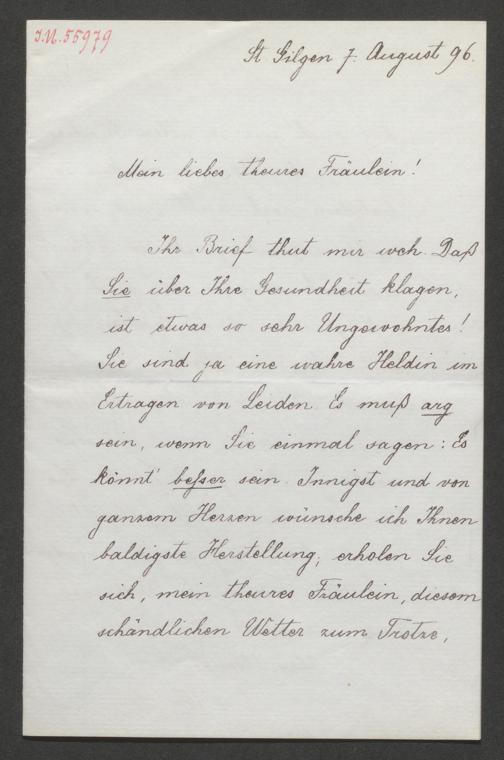 I.N. 55979
St. Gilgen 7. August 96.
Mein liebes theures Fräulein!
Ihr Brief thut mir weh. Daß
Sie über Ihre Gesundheit klagen,
ist etwas so sehr Ungewohntes!
Sie sind ja eine wahre Heldin im
Ertragen von Leiden. Es muß arg
sein, wenn Sie einmal sagen: Es
könnt' besser sein. Innigst und von
ganzem Herzen wünsche ich Ihnen
baldigste Herstellung; erholen Sie
sich, mein theures Fräulein, diesem
schändlichen Wetter zum Trotze,